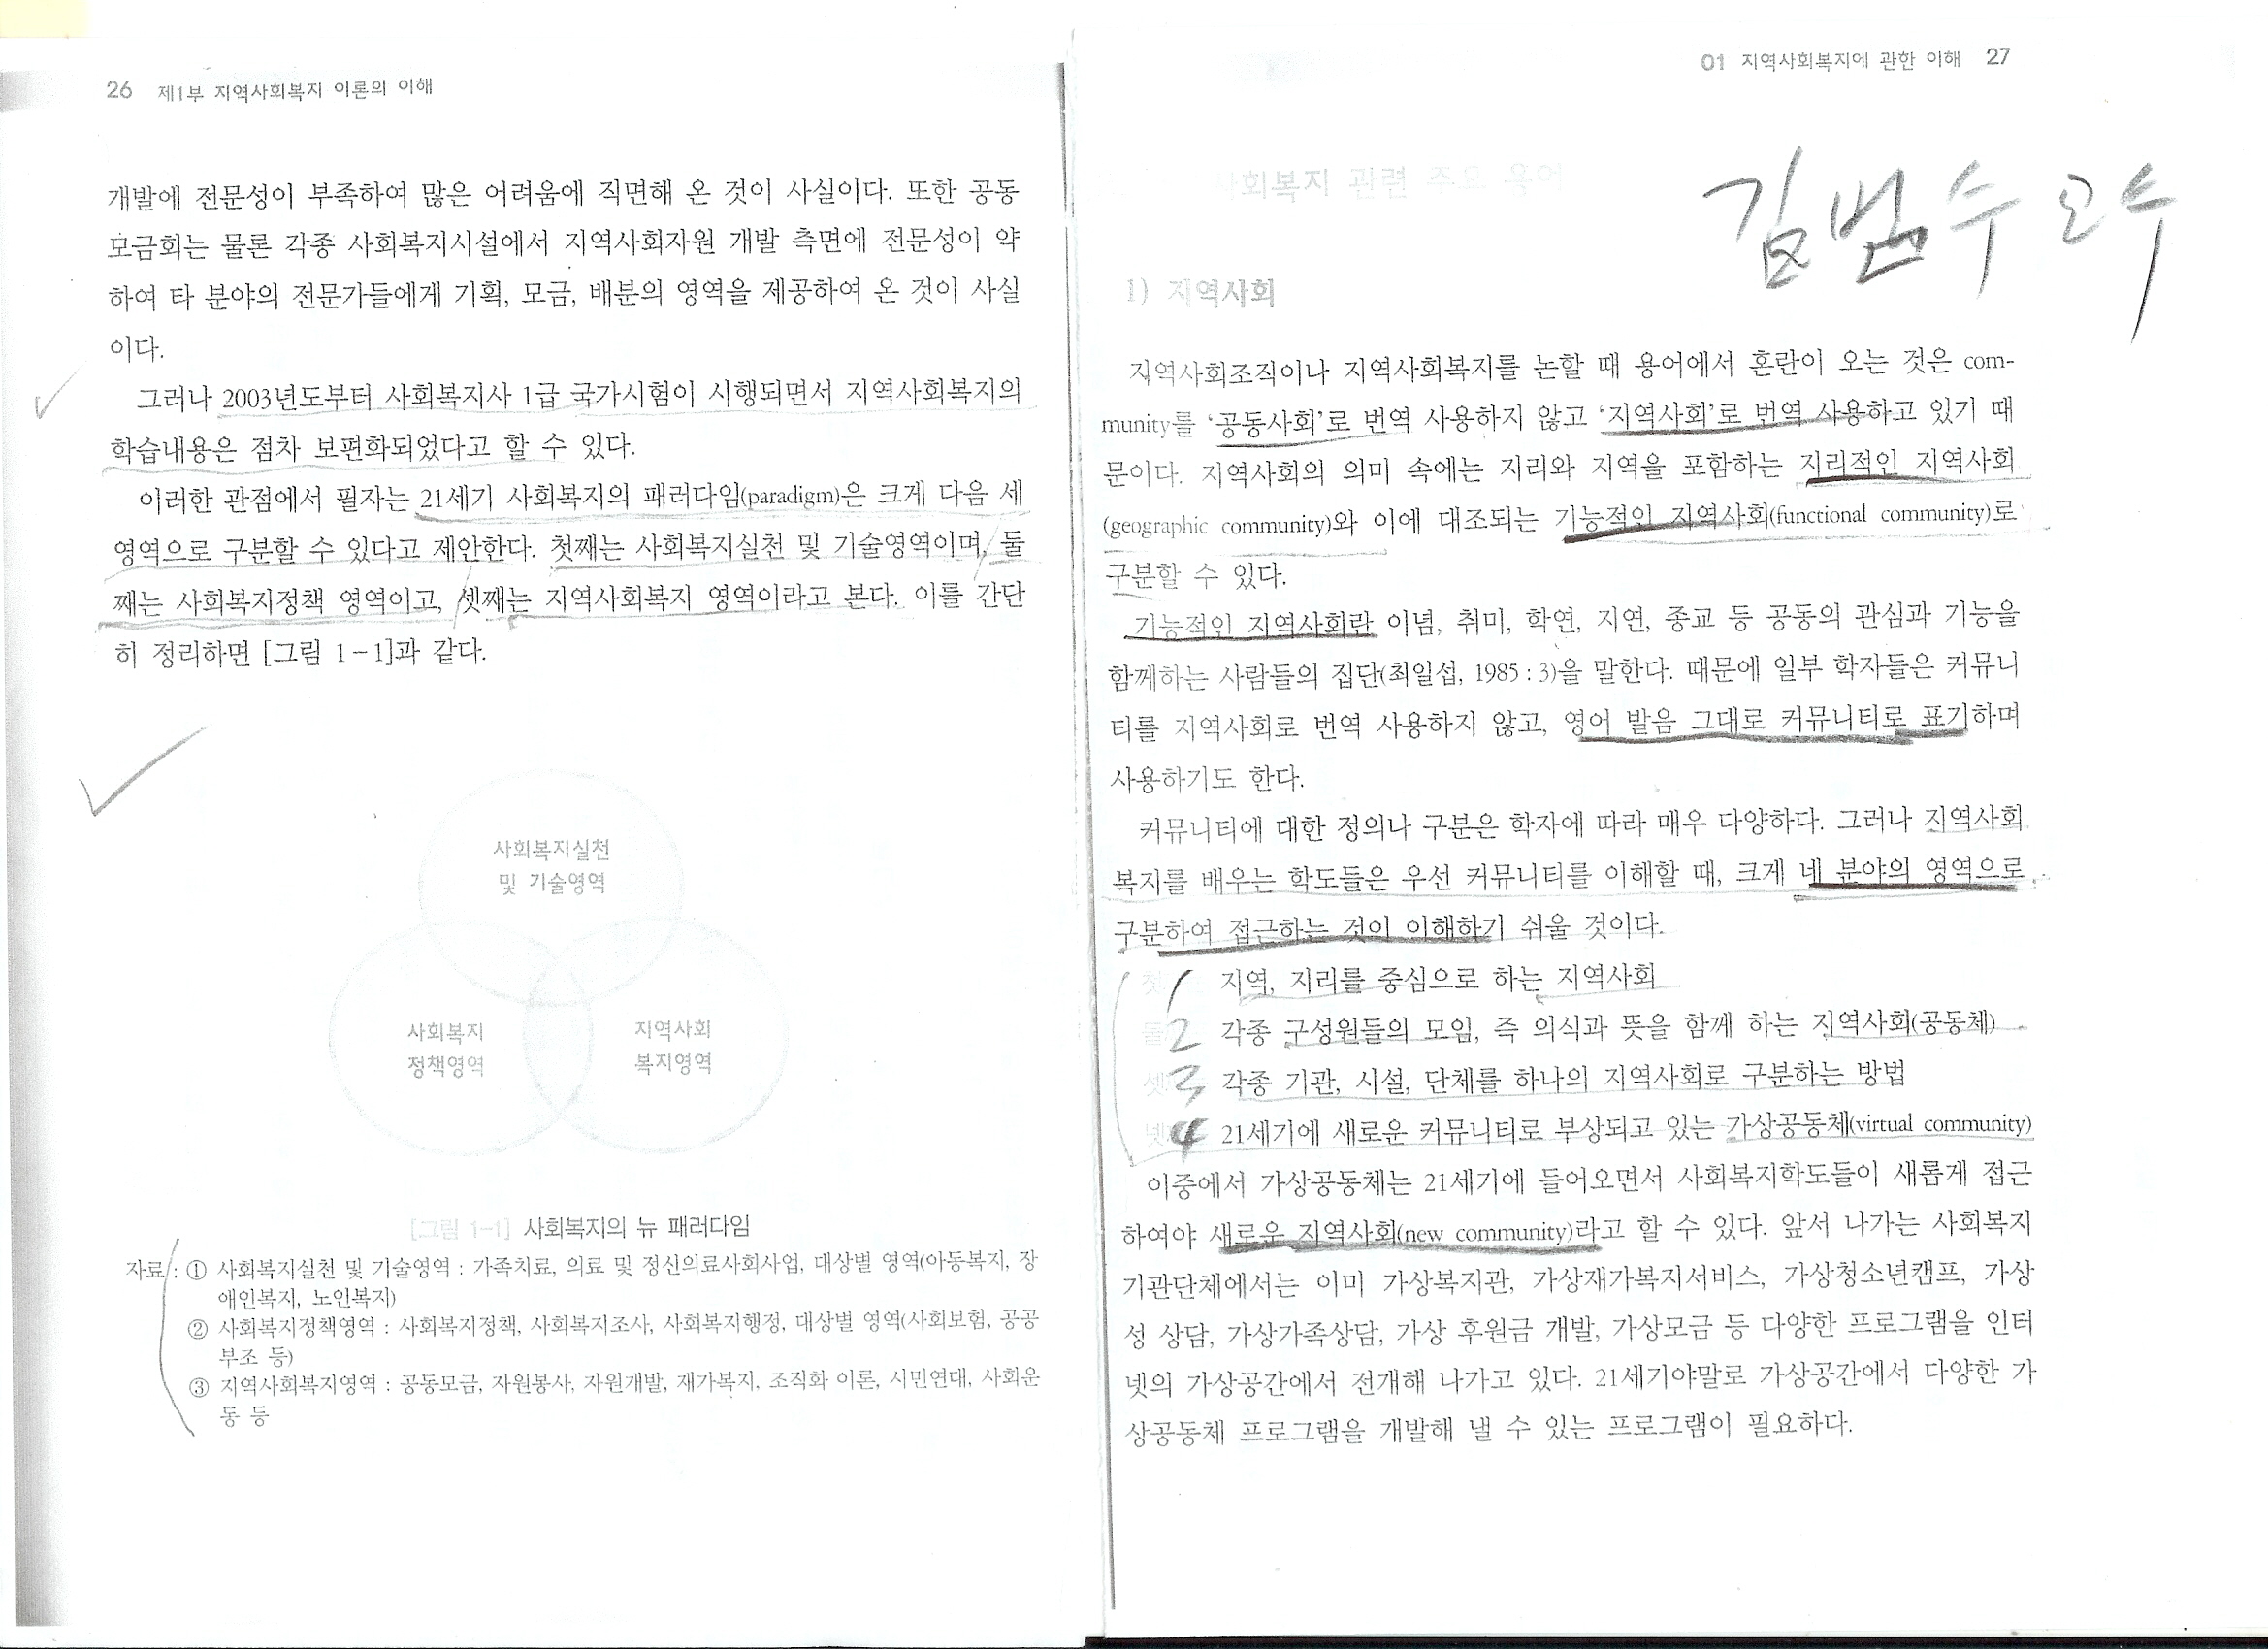 26 제1부 지역사회복지 이론의 이해
개발에 전문성이 부족하여 많은 어려움에 직면해 온 것이 사실이다. 또한 공동
모금회는 물론 각종 사회복지시설에서 지역사회자원 개발 측면에 전문성이 약
하여 타 분야의 전문가들에게 기획, 모금, 배분의 영역을 제공하여 온 것이 사실
이다.
그러나 2003년도부터 사회복지사 1급 국가시험이 시행되면서 지역사회복지의
학습내용은 점차 보편화되었다고 할 수 있다.
이러한 관점에서 필자는 21세기 사회복지의 패러다임(paradigm)은 크게 다음 세
영역으로 구분할 수 있다고 제안한다. 첫째는 사회복지실천 및 기술영역이며, 둘
째는 사회복지정책 영역이고, 셋째는 지역사회복지 영역이라고 본다. 이를 간단
히 정리하면 [그림 1-1]과 같다.
사회복지실천
및 기술영역
사회복지
정책영역
지역사회
복지영역
[그림 1-1] 사회복지의 뉴 패러다임
자료 : ① 사회복지실천 및 기술영역 : 가족치료, 의료 및 정신의료사회사업, 대상별 영역(아동복지, 장
애인복지, 노인복지)
② 사회복지정책영역 : 사회복지정책, 사회복지조사, 사회복지행정, 대상별 영역(사회보험, 공공
부조 등)
③ 지역사회복지영역 : 공동모금, 자원봉사, 자원개발, 재가복지, 조직화 이론, 시민연대, 사회운
동 등
01 지역사회복지에 관한 이해 27
사회복지 관련 주요 용어
김범수
1) 지역사회
지역사회조직이나 지역사회복지를 논할 때 용어에서 혼란이 오는 것은 com-
munity를 '공동사회'로 번역 사용하지 않고 '지역사회'로 번역 사용하고 있기 때
문이다. 지역사회의 의미 속에는 지리와 지역을 포함하는 지리적인 지역사회
(geographic community)와 이에 대조되는 기능적인 지역사회(functional community)로
구분할 수 있다.
기능적인 지역사회란 이념, 취미, 학연, 지연, 종교 등 공동의 관심과 기능을
함께하는 사람들의 집단(최일섭, 1985 : 3)을 말한다. 때문에 일부 학자들은 커뮤니
티를 지역사회로 번역 사용하지 않고, 영어 발음 그대로 커뮤니티로 표기하며
사용하기도 한다.
커뮤니티에 대한 정의나 구분은 학자에 따라 매우 다양하다. 그러나 지역사회
복지를 배우는 학도들은 우선 커뮤니티를 이해할 때, 크게 네 분야의 영역으로
구분하여 접근하는 것이 이해하기 쉬울 것이다.
1 지역, 지리를 중심으로 하는 지역사회
2 각종 구성원들의 모임, 즉 의식과 뜻을 함께 하는 지역사회(공동체)
3 각종 기관, 시설, 단체를 하나의 지역사회로 구분하는 방법
4 21세기에 새로운 커뮤니티로 부상되고 있는 가상공동체(virtual community)
이중에서 가상공동체는 21세기에 들어오면서 사회복지학도들이 새롭게 접근
하여야 새로운 지역사회(new community)라고 할 수 있다. 앞서 나가는 사회복지
기관단체에서는 이미 가상복지관, 가상재가복지서비스, 가상청소년캠프, 가상
성 상담, 가상가족상담, 가상 후원금 개발, 가상모금 등 다양한 프로그램을 인터
넷의 가상공간에서 전개해 나가고 있다. 21세기야말로 가상공간에서 다양한 가
상공동체 프로그램을 개발해 낼 수 있는 프로그램이 필요하다.